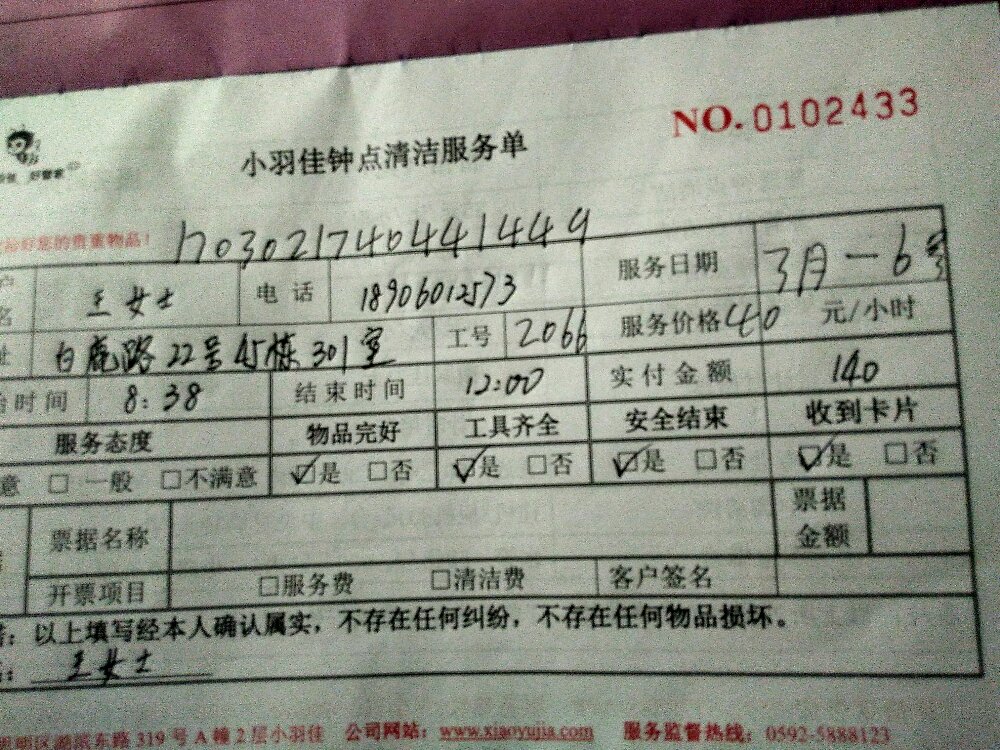 NO.0102433
小羽佳钟点清洁服务单
好管家
好您的贵重物品!
1703021740441449
名 王女士 电话 18906012573 服务日期 3月-6号
址 白鹿路22号45栋301室 工号 2066 服务价格 40 元/小时
时间 8:38 结束时间 12:00 实付金额 140
服务态度 物品完好 工具齐全 安全结束 收到卡片
意 □一般 □不满意 ☑是 □否 ☑是 □否 ☑是 □否 ☑是 □否
票据名称 票据金额
开票项目 □服务费 □清洁费 客户签名
以上填写经本人确认属实，不存在任何纠纷，不存在任何物品损坏。
王女士
明区湖滨东路319号A幢2层小羽佳 公司网站：www.xiaoyujia.com 服务监督热线：0592-5888123